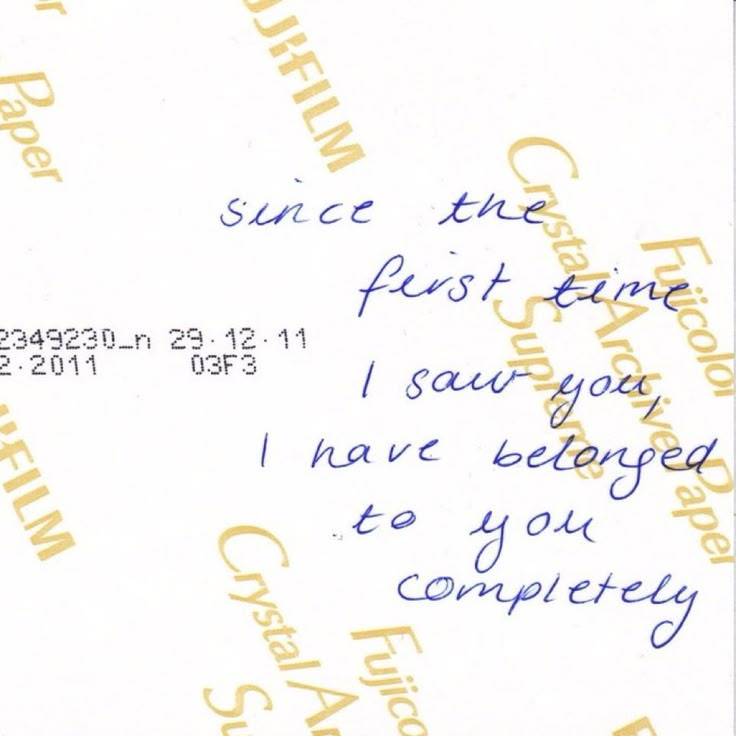 or
Paper
FUJIFILM
since the
first time
I saw you,
I have belonged
to you
completely
2349230_n 29.12.11
2.2011 03F3
Crystal Archive Paper
Supreme
Fujicolor
FILM
Crystal Ar
Su
Fujico